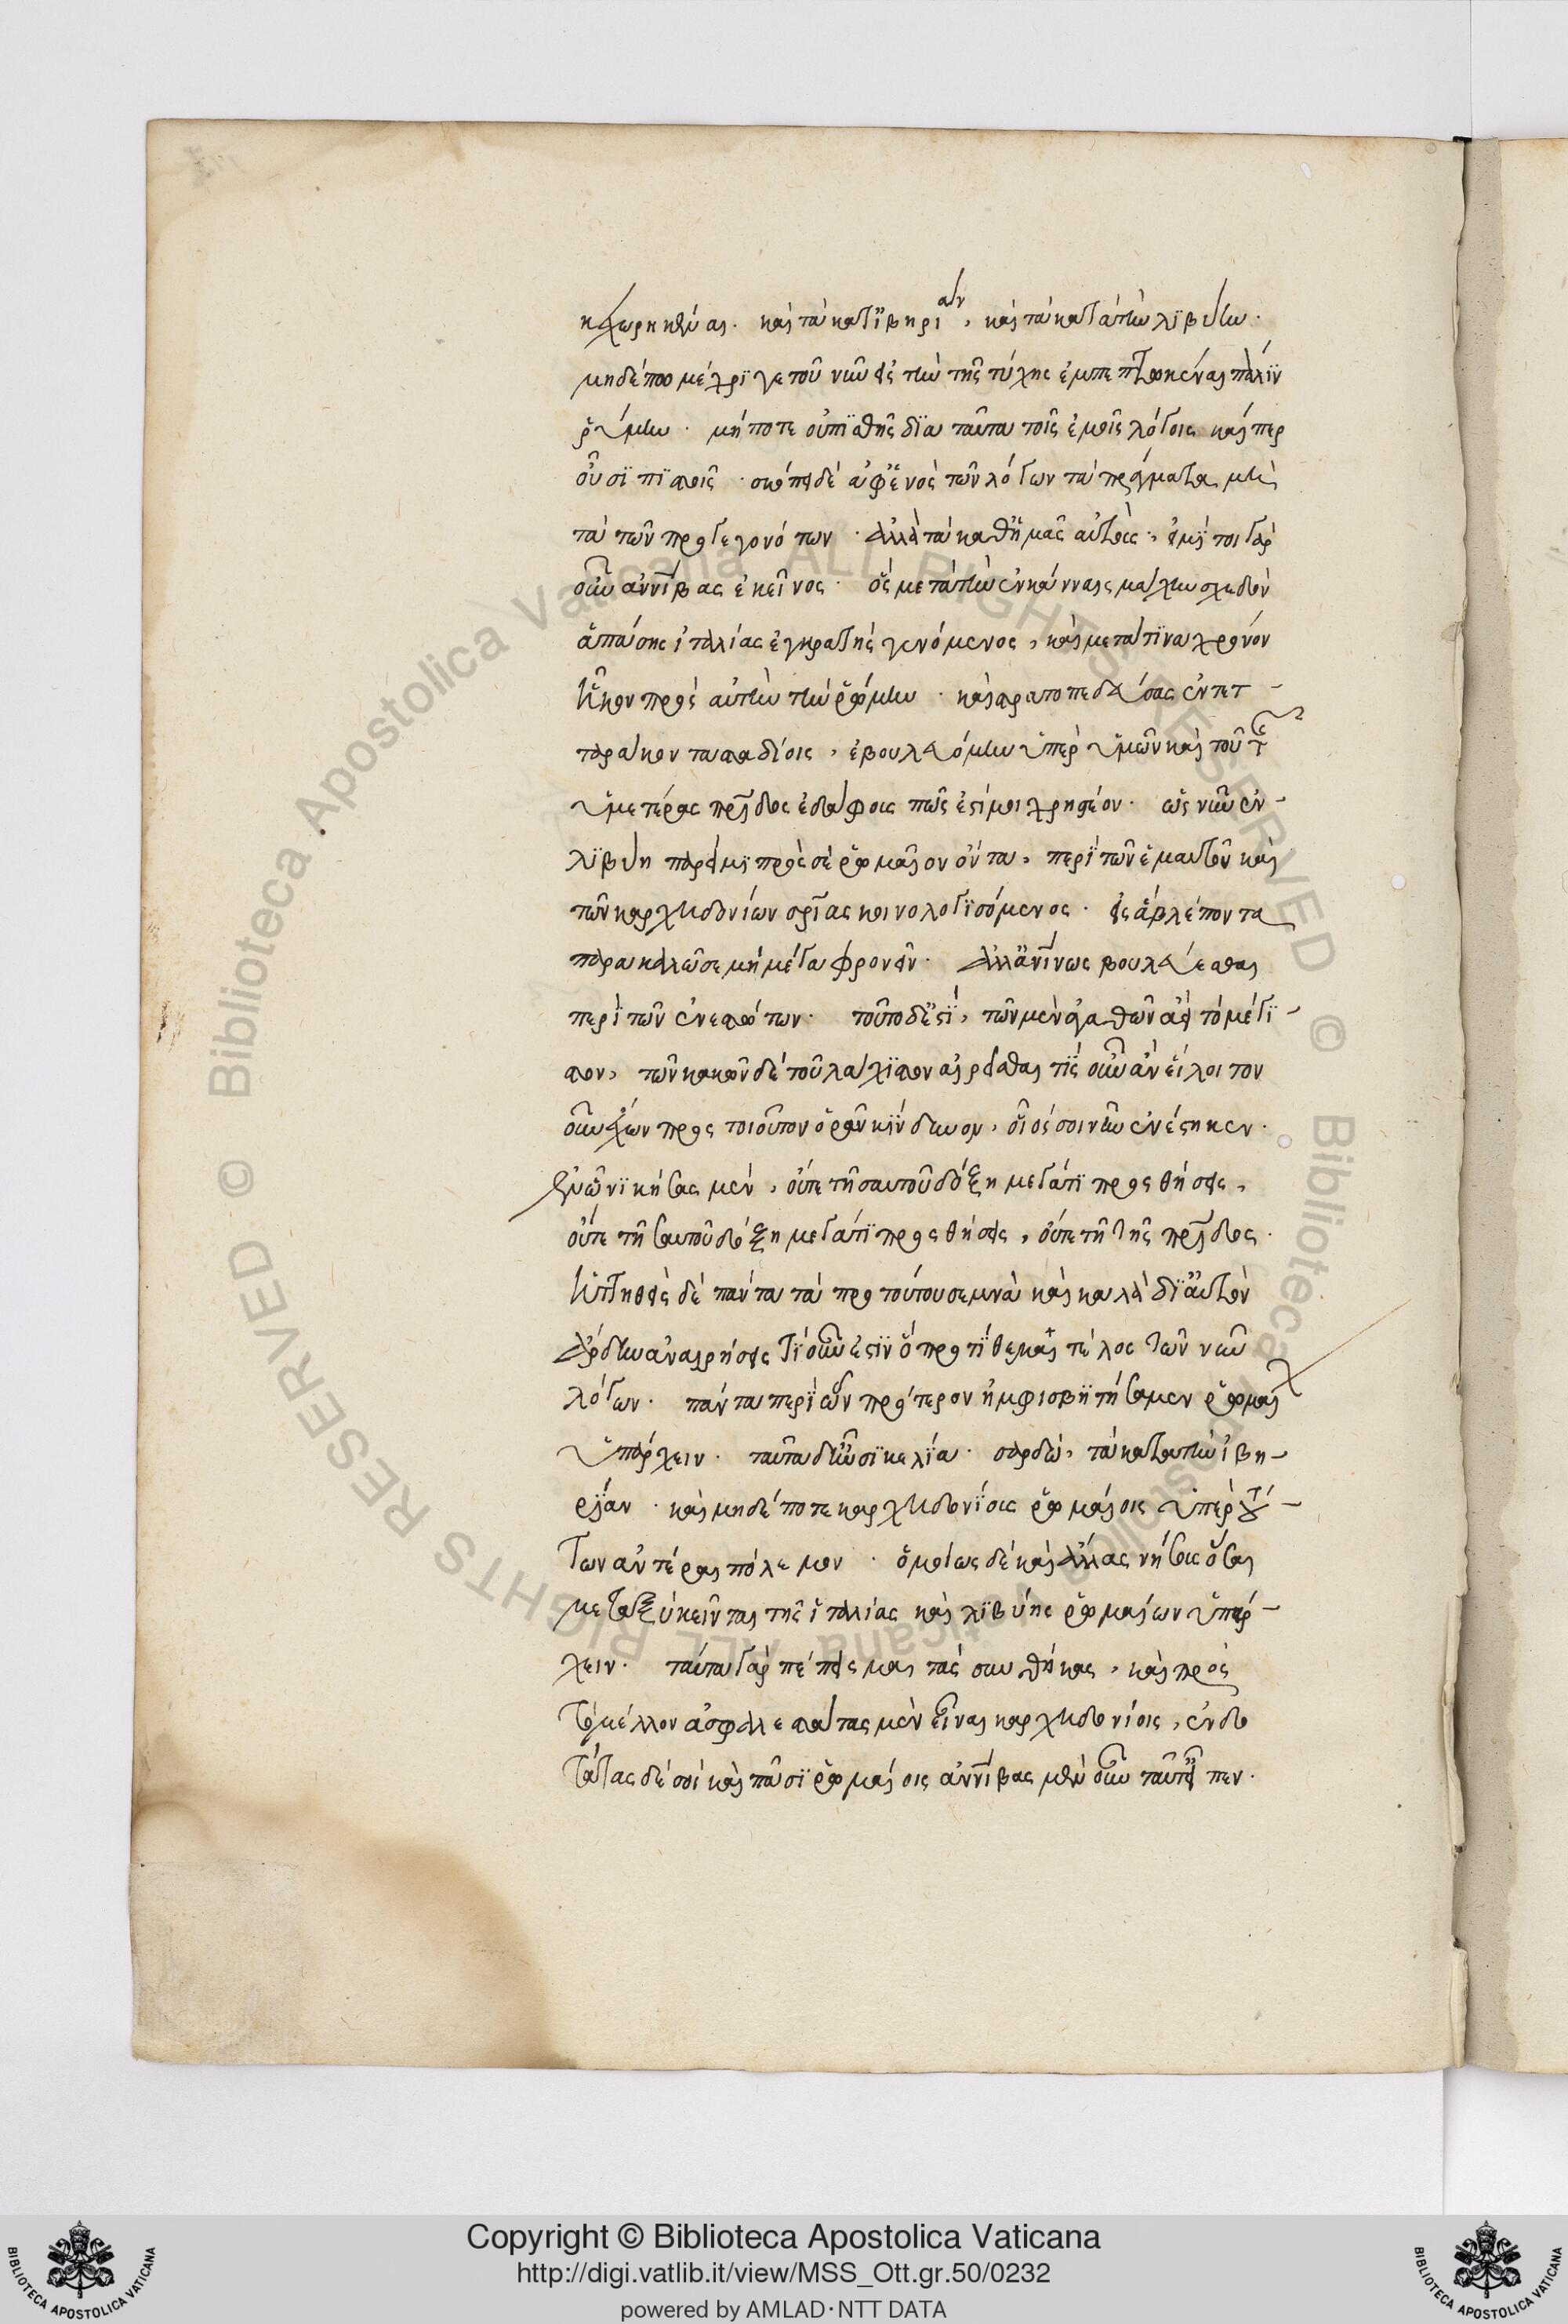 κεχωρηκέναι. καὶ τὰ κατ ἰβηρίαν, καὶ τὰ κατὰ τὴν λϊβύην.
μηδέπω μέχρϊ γε τοῦ νῦν εἰς τὴν τῆς τύχης ἐμπεπτωκέναι πάλϊν
ῥύμην. μή ποτε οὐ πϊσθῆς δϊα ταῦτα τοῖς ἐμοῖς λόγοις καίπερ
οὖσϊ πϊστοῖς. σκόπει δὲ ἀφ ἕνὸς τῶν λόγων τὰ πράγματα, μὴ
τὰ τῶν προγεγονότων. ἀλλὰ τὰ καθ ἡμᾶς αὐτούς. εἰμὶ τοι γὰρ
οῦν ἀννίβας ἐκεῖνος. ὅς μετὰ τὴν ἐν κάνναις μάχην σχεδὸν
ἁπάσης ἰταλίας ἐγκρατὴς γενόμενος, καὶ μετά τϊνα χρόνον
ἧκον πρὸς αὐτὴν τὴν ῥώμην. καὶ στρατοπεδεύσας ἐν τετ-
ταράκοντα σταδίοις, ἐβουλευόμην ὑπὲρ ὑμῶν καὶ τοῦ τῆς
ὑμετέρας πρίδος ἐδάφους πῶς ἐστί μοι χρηστέον. ὡς νῦν ἐν-
λϊβύη πάρειμϊ πρὸς σὲ ῥωμαῖον ὄντα, περὶ τῶν ἐμαυτοῦ καὶ
τῶν καρχηδονίων σρίας κοινολογϊσόμενος. εἰς ἃ βλέποντα
παρακαλῶ σε μὴ μέγα φρονεῖν. ἀλλ ἀνίνως βουλεύεσθαι
περὶ τῶν ἐνεστώτων. τοῦτο δ ἐστϊ, τῶν μὲν ἀγαθῶν ἀεὶ τὸ μέγϊ-
στον, τῶν κακῶν δὲ τοὐλάχϊστον αἱρεῖσθαι τίς οὖν ἂν ἕλοι τον
οῦν ἔχων πρὸς τοιοῦτον ὁρᾶν κϊνδυνον, οἷος σοι νῦν ἐνέστηκεν.
ἐν ᾧ νϊκήσας μὲν, οὔτε τῆ σαυτοῦ δόξη μεγάτϊ προςθήσεις,
οὔτε τῆ σαυτοῦ δόξη μεγάτϊ προςθήσεις, οὔτε τῆ τῆς πρίδος.
ἡττηθεὶς δὲ πάντα τὰ πρὸ τούτου σεμνὰ καὶ καλὰ δϊ αὑτὸν
ἄρδην ἀναιρήσεις τϊ οὖν ἐστϊν ὃ προτίθεμαι τέλος τῶν νῦν
λόγων. πάντα περὶ ὧν πρότερον ἠμφισβητήσαμεν ῥωμαί
ὑπάρχειν. ταῦτα δ ἦν σϊκελία. σαρδὼ, τὰ κατὰ τὴν ἰβη-
ρίαν. καὶ μηδέποτε καρχηδονίοις ῥωμαίοις ὑπὲρ τού-
των ἀντάραι πόλεμον. ὁμοίως δὲ καὶ ἄλλας νήσους ὅσαι
μεταξὺ κεῖνται τῆς ἰταλίας καὶ λϊβύης ῥωμαίων ὑπάρ-
χειν. ταύτας γὰρ πέπεισμαι τὰς συνθήκας, καὶ πρὸς
τὸ μέλλον ἀσφαλεστάτας μὲν εἶναι καρχηδονίοις, ἐνδο
τάτας δὲ σοὶ καὶ πᾶσϊ ῥωμαίοις ἀννίβας μὲν οὖν ταῦτ εἶπεν.
Copyright © Biblioteca Apostolica Vaticana
http://digi.vatlib.it/view/MSS_Ott.gr.50/0232
powered by AMLAD·NTT DATA